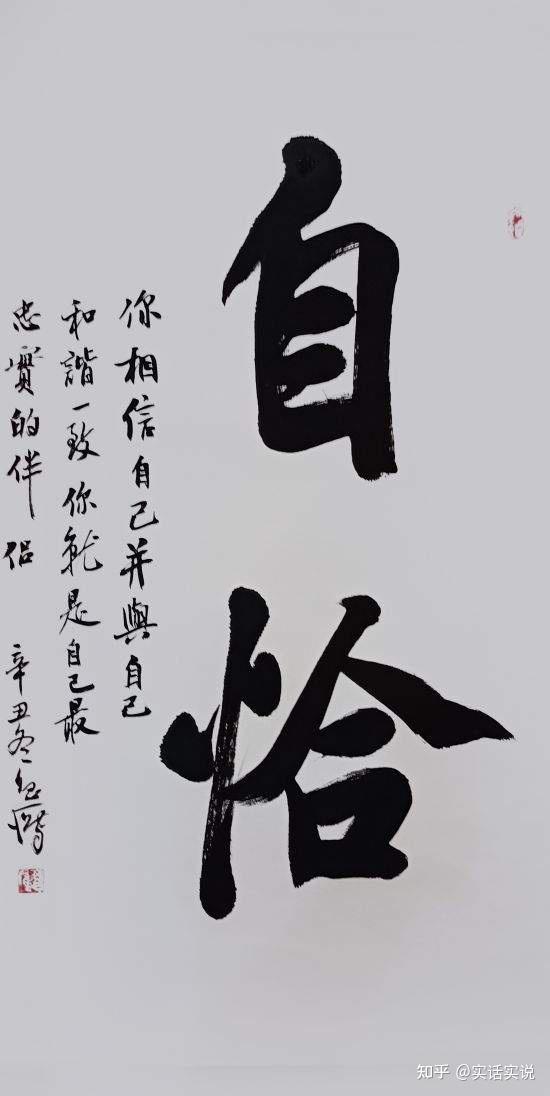 自恰
你相信自己并與自己
和諧一致你就是自己最
忠實的伴侣
辛丑冬
知乎 @实话实说